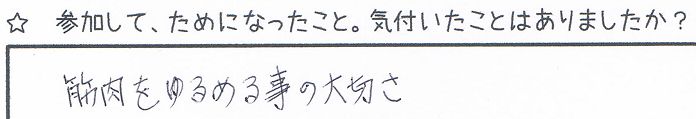 ☆ 参加して、ためになったこと。気付いたことはありましたか？
筋肉をゆるめる事の大切さ